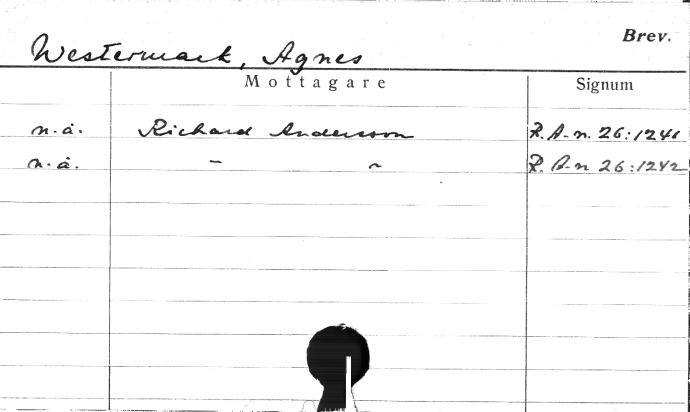 Brev.
Westermark, Agnes
Mottagare Signum
n.å. Richard Andersson R. A-n. 26:1241
n.å. - ~ R. A-n 26:1242